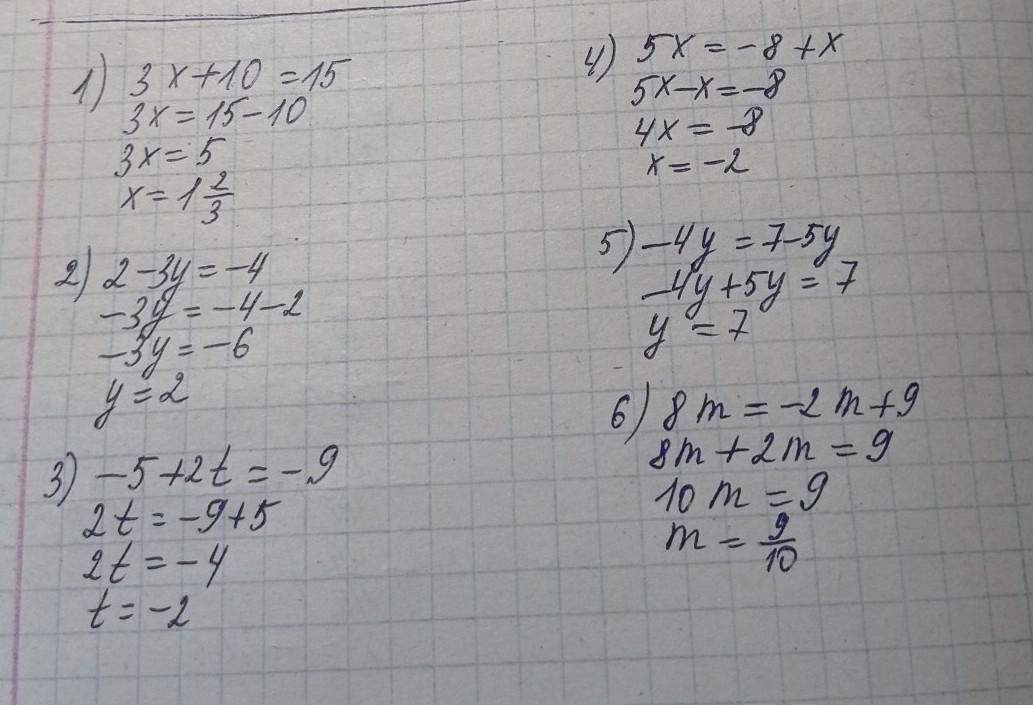 1) 3x+10=15
3x=15-10
3x=5
x=1 2/3
2) 2-3y=-4
-3y=-4-2
-3y=-6
y=2
3) -5+2t=-9
2t=-9+5
2t=-4
t=-2
4) 5x=-8+x
5x-x=-8
4x=-8
x=-2
5) -4y=7-5y
-4y+5y=7
y=7
6) 8m=-2m+9
8m+2m=9
10m=9
m=9/10